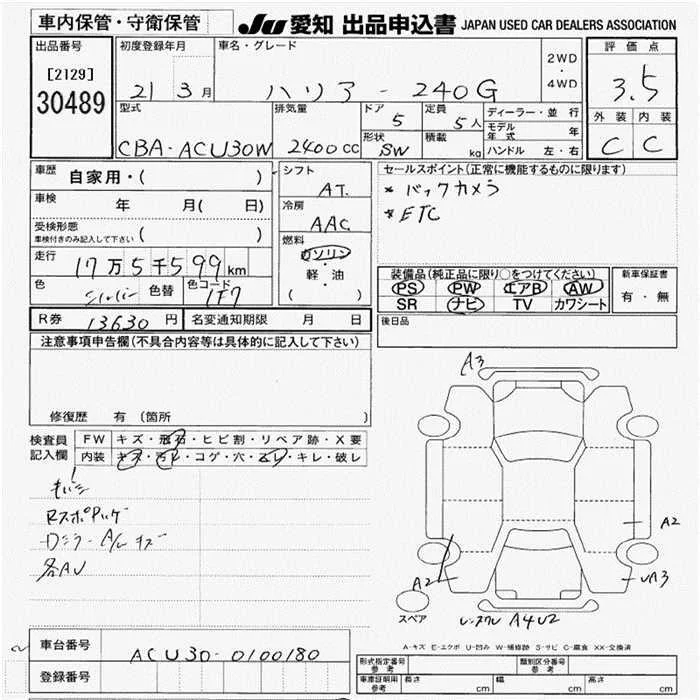 車内保管・守衛保管
JU 愛知 出品申込書 JAPAN USED CAR DEALERS ASSOCIATION
出品番号
[2129]
30489
初度登録年月
21 3月
車名・グレード
ハリアー 240G
2WD
・
4WD
評価点
3.5
外装 内装
C C
型式
CBA-ACU30W
排気量
2400cc
ドア
5
定員
5人
形状
SW
積載
kg
ディーラー・並行
モデル年式 年
ハンドル 左・右
車歴 自家用・( )
車検 年 月( 日)
受検形態
車検付きのみ記入して下さい ( )
走行 17万5千599km
色 シルバー 色替 色コード 1F7
シフト
AT.
冷房
AAC
燃料
ガソリン
・
軽・油
( )
セールスポイント(正常に機能するものに限ります)
* バックカメラ
* ETC
装備品(純正品に限り○をつけてください)
PS PW エアB AW
SR ナビ TV カワシート
新車保証書
有・無
R券 13630円 名変通知期限 月 日
後日品
注意事項申告欄(不具合内容等は具体的に記入して下さい)
修復歴 有 (箇所 )
検査員
記入欄
FW キズ・飛石・ヒビ割・リペア跡・X要
内装 キズ・汚レ・コゲ・穴・スレ・キレ・破レ
RスポPハゲ
Dミラー A/C キズ
各AU
A3
A2
A2
UA3
スペア
A4U2
A-キズ E-エクボ U-凹み W-補修跡 S-サビ C-腐食 XX-交換済
車台番号 ACU30-0100180
登録番号
形式指定番号
参考
類別区分番号
参考
車庫証明用
参考
長さ cm 幅 cm 高さ cm